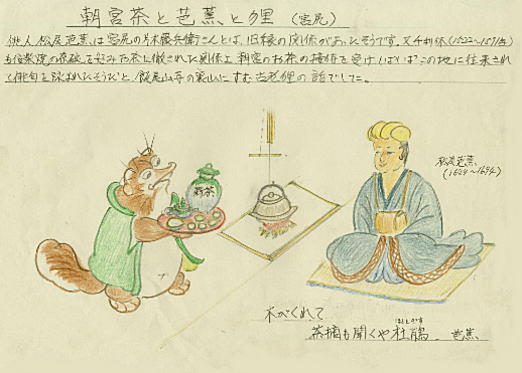 朝宮茶と芭蕉と狸 (宮尻)
俳人松尾芭蕉は宮尻の片木藤兵衛さんとは、旧縁の関係があったそうです。又千利休(1522〜1591)
も信楽焼の茶碗を好みた茶に徹された関係上 朝宮のお茶の接待を受け、しばしばこの地に往来され
て俳句を詠まれたそうだと、裏山にすむ古老狸の話でした。
朝茶
松尾芭蕉
(1644〜1694)
木がくれて
ほととぎす
茶摘も聞くや杜鵑 芭蕉